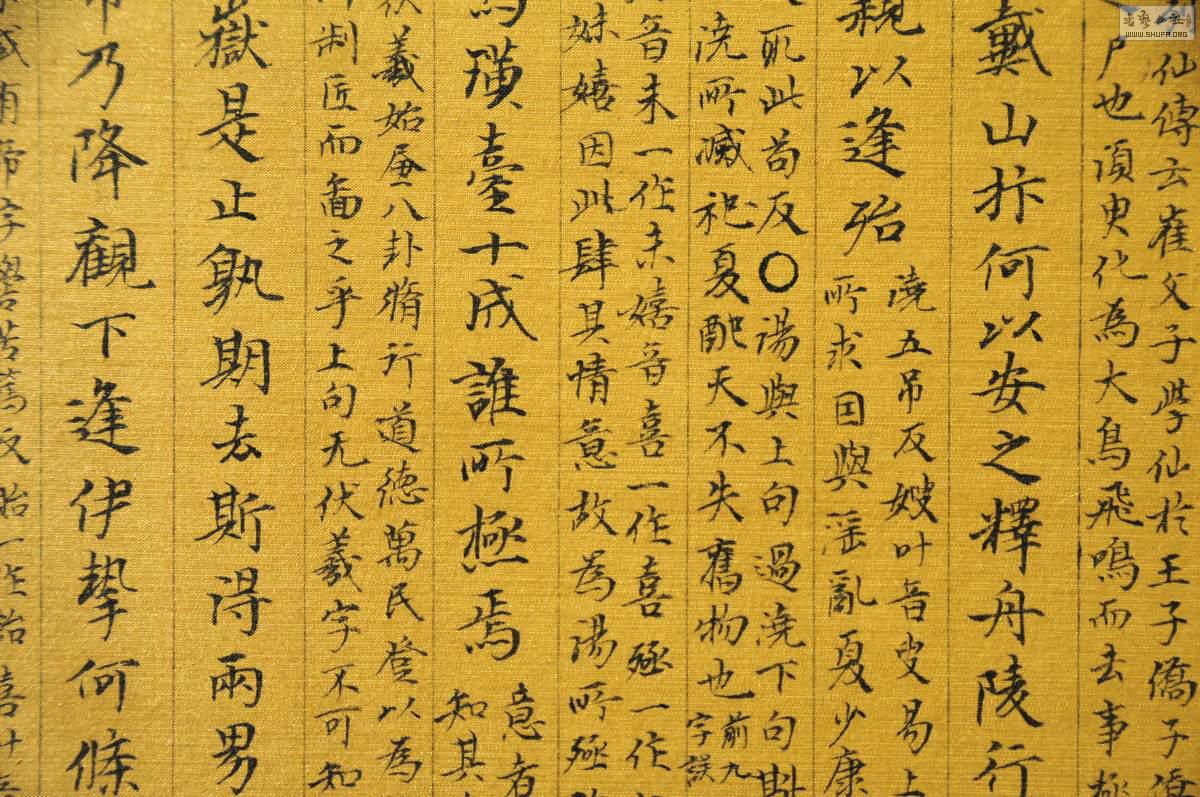 仙傳云崔父子學仙於王子僑子僑
尸也須臾化為大鳥飛鳴而去事極
戴山抃何以安之釋舟陵行
親以逢殆
澆五吊反嫂叶音叟易上
所求因與淫亂夏少康
此苟反〇湯與上句過澆下句斟
澆所滅祀夏配天不失舊物也前九字誤
音末一作末嬉音喜一作喜殛一作
妹嬉因此肆其情意故為湯所殛
璜臺十成誰所極焉
意者
知其
伏羲始畫八卦脩行道德萬民登以為
制匠而啚之乎上句无伏羲字不可知
嶽是止孰期去斯得兩男
帝乃降觀下逢伊摯何條
或有帝字嚳苦篤反貽一作詒喜叶
WWW.SHUFA.ORG